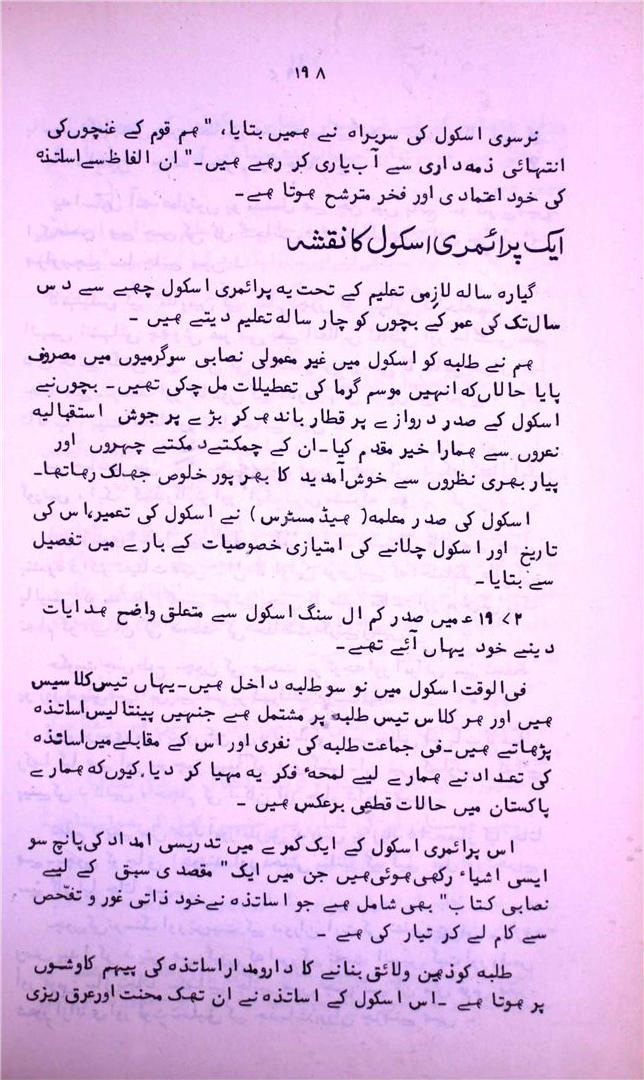 ۱۹۸
نرسری اسکول کی سربراہ نے ہمیں بتایا، "ہم قوم کے غنچوں کی
انتہائی ذمہ داری سے آب یاری کر رہے ہیں۔" ان الفاظ سے اساتذہ
کی خود اعتمادی اور فخر مترشح ہوتا ہے۔
ایک پرائمری اسکول کا نقشہ
گیارہ سالہ لازمی تعلیم کے تحت یہ پرائمری اسکول چھے سے دس
سال تک کی عمر کے بچوں کو چار سالہ تعلیم دیتے ہیں ۔
ہم نے طلبہ کو اسکول میں غیر معمولی نصابی سرگرمیوں میں مصروف
پایا حالاں کہ انہیں موسم گرما کی تعطیلات مل چکی تھیں۔ بچوں نے
اسکول کے صدر دروازے پر قطار باندھ کر بڑے پر جوش استقبالیہ
نعروں سے ہمارا خیر مقدم کیا۔ ان کے چمکتے دمکتے چہروں اور
پیار بھری نظروں سے خوش آمدید کا بھر پور خلوص جھلک رہا تھا۔
اسکول کی صدر معلمہ (ہیڈ مسٹرس) نے اسکول کی تعمیر، اس کی
تاریخ اور اسکول چلانے کی امتیازی خصوصیات کے بارے میں تفصیل
سے بتایا۔
۱۹۷۲ء میں صدر کم ال سنگ اسکول سے متعلق واضح ہدایات
دینے خود یہاں آئے تھے۔
فی الوقت اسکول میں نو سو طلبہ داخل ہیں۔ یہاں تیس کلاسیں
ہیں اور ہر کلاس تیس طلبہ پر مشتمل ہے جنہیں پینتالیس اساتذہ
پڑھاتے ہیں۔ فی جماعت طلبہ کی نفری اور اس کے مقابلے میں اساتذہ
کی تعداد نے ہمارے لیے لمحہٴ فکریہ مہیا کر دیا، کیوں کہ ہمارے
پاکستان میں حالات قطعی برعکس ہیں ۔
اس پرائمری اسکول کے ایک کمرے میں تدریسی امداد کی پانچ سو
ایسی اشیاء رکھی ہوئی ہیں جن میں ایک "مقصدی سبق کے لیے
نصابی کتاب" بھی شامل ہے جو اساتذہ نے خود ذاتی غور و تفحّص
سے کام لے کر تیار کی ہے ۔
طلبہ کو ذہین و لائق بنانے کا دارومدار اساتذہ کی پیہم کاوشوں
پر ہوتا ہے ۔ اس اسکول کے اساتذہ نے ان تھک محنت اور عرق ریزی